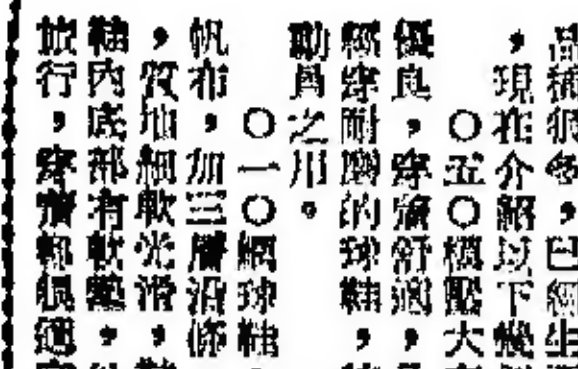 品種很多，已經生
，現在介紹以下幾
〇五〇模壓大
優良，穿着舒適，
經穿耐磨的球鞋，
動員之用。
〇一〇網球鞋
帆布，加三層沿條
，質地細軟光滑，
鞋內底部有軟墊，
旅行，穿着都很適